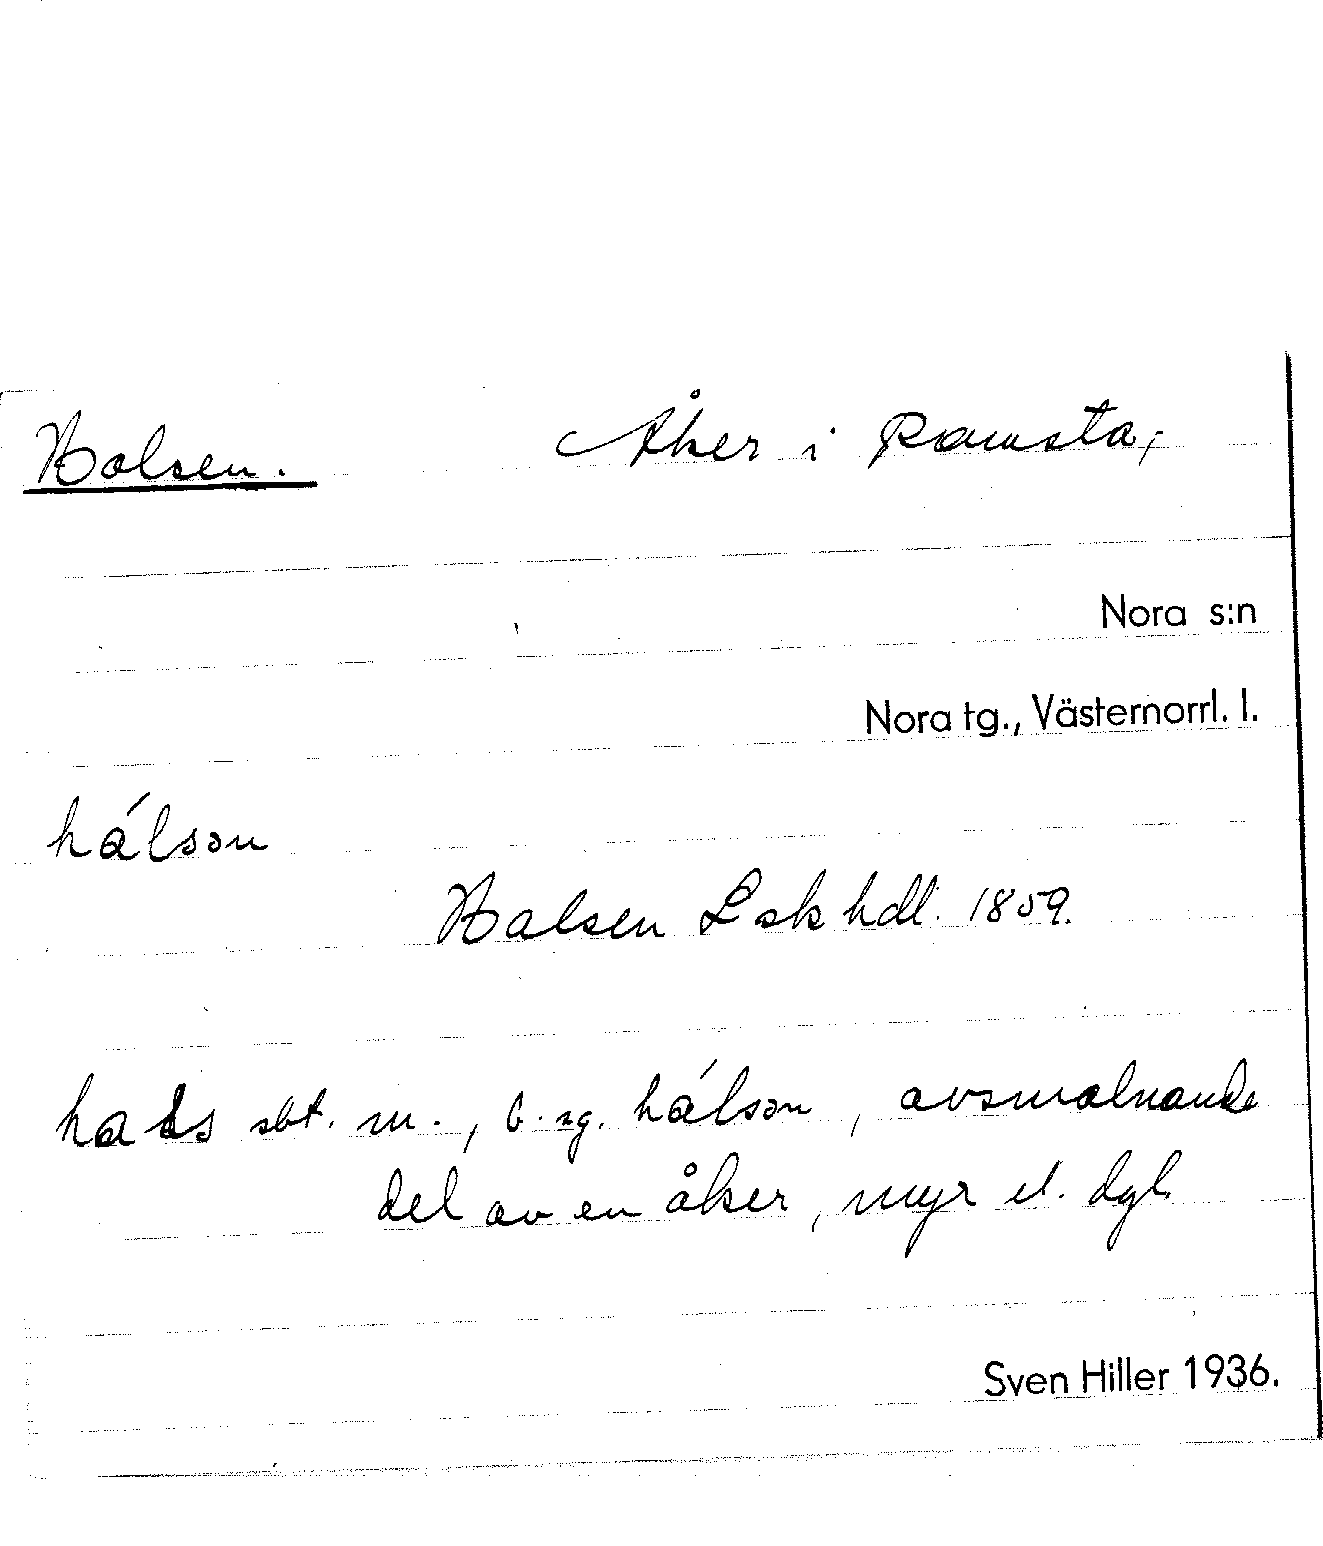 Halsen. Åker i Ramsta,
Nora s:n
Nora tg., Västernorrl. l.
hálsən
Halsen Lskhdl. 1859.
hals sbt. m., b. sg. hálsən, avsmalnande
del av en åker, myr el. dyl.
Sven Hiller 1936.